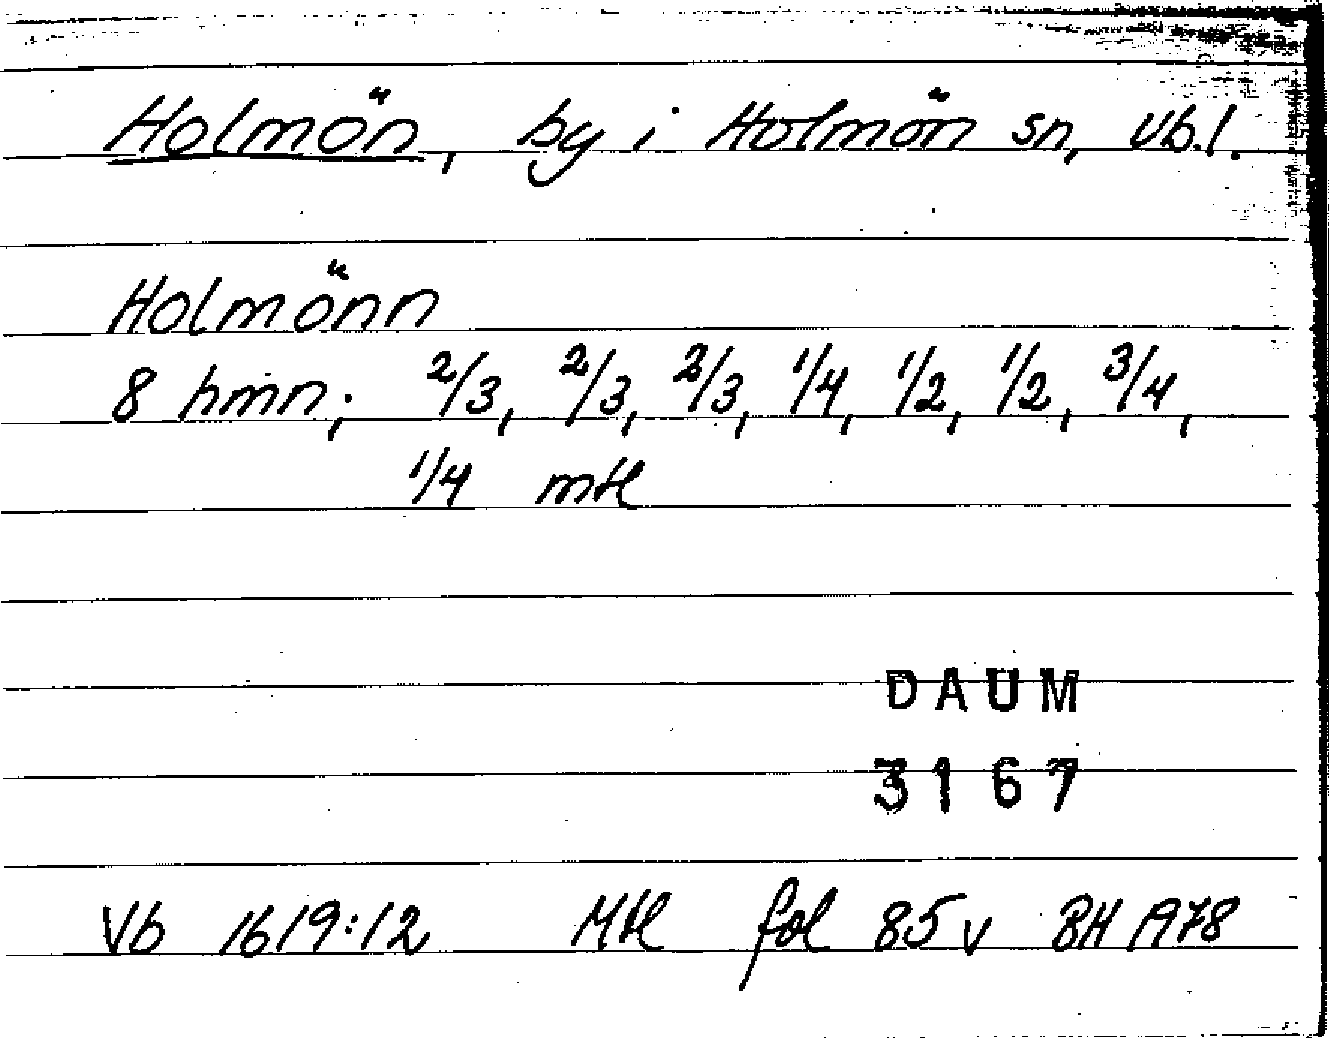 Holmön, by i Holmön sn, Vb.l.
Holmönn
8 hmn; 2/3, 2/3, 2/3, 1/4, 1/2, 1/2, 3/4,
1/4 mtl
DAUM
3167
Vb 1619:12 Mtl fol 85v BH 1978